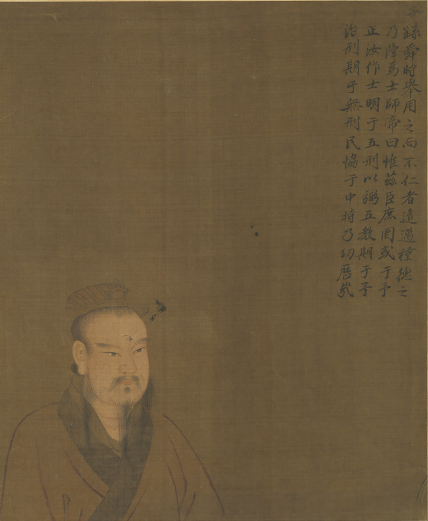 繇舜時舉用之而不仁者遠邁種德之
乃陞為士師帝曰惟茲臣庶罔或于予
正汝作士明于五刑以弼五教期于予
治刑期于無刑民協于中時乃功懋哉